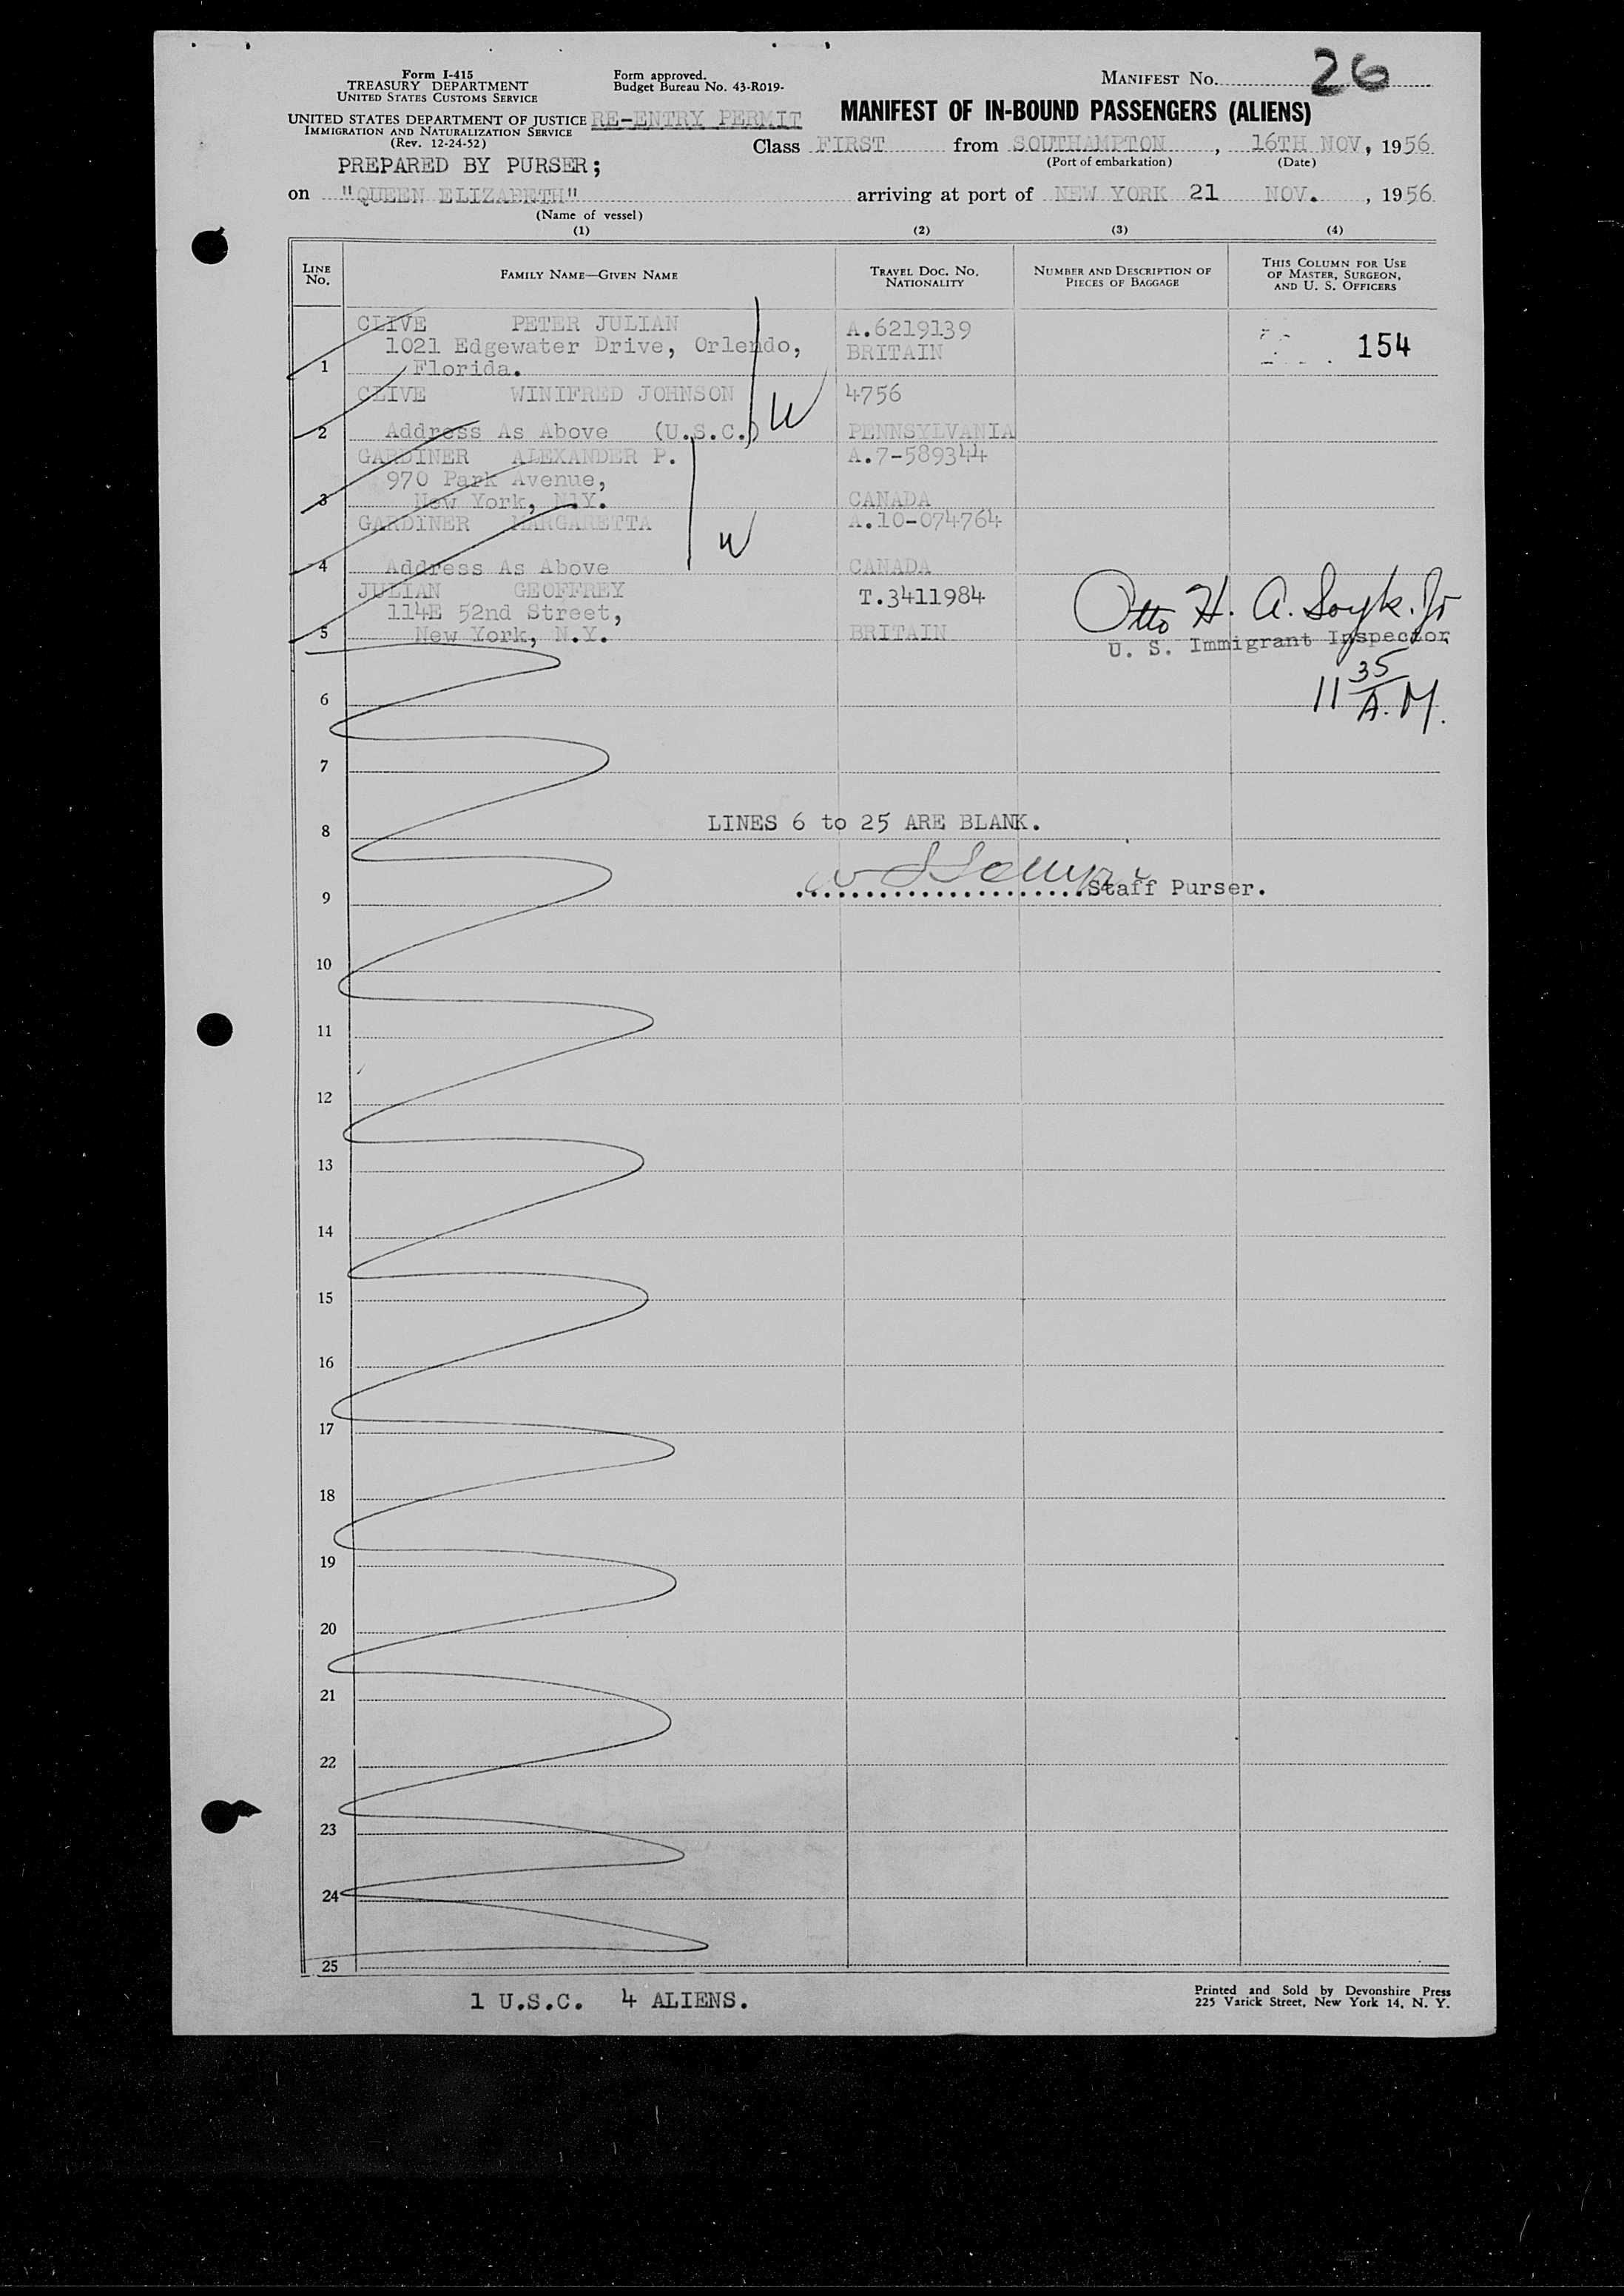 Form I-415
TREASURY DEPARTMENT
UNITED STATES CUSTOMS SERVICE
UNITED STATES DEPARTMENT OF JUSTICE
IMMIGRATION AND NATURALIZATION SERVICE
(Rev. 12-24-52)
Form approved.
Budget Bureau No. 43-R019-
RE-ENTRY PERMIT
MANIFEST No. 26
MANIFEST OF IN-BOUND PASSENGERS (ALIENS)
Class FIRST from SOUTHAMPTON, 16TH NOV, 1956
(Port of embarkation) (Date)
PREPARED BY PURSER;
on "QUEEN ELIZABETH" arriving at port of NEW YORK 21 NOV. , 1956
(Name of vessel)
(1) (2) (3) (4)
LINE No. FAMILY NAME—GIVEN NAME TRAVEL DOC. NO. NATIONALITY NUMBER AND DESCRIPTION OF PIECES OF BAGGAGE THIS COLUMN FOR USE OF MASTER, SURGEON, AND U. S. OFFICERS
CLIVE PETER JULIAN A.6219139
1021 Edgewater Drive, Orlendo, BRITAIN 154
1 Florida.
CLIVE WINIFRED JOHNSON 4756
W
2 Address As Above (U.S.C.) PENNSYLVANIA
GARDINER ALEXANDER P. A.7-589344
970 Park Avenue,
3 New York, N1Y. CANADA
GARDINER MARGARETTA A.10-074764
W
4 Address As Above CANADA
JULIAN GEOFFREY T.3411984
114E 52nd Street,
5 New York, N.Y. BRITAIN
Otto H. A. Soyk. Jr
U. S. Immigrant Inspector
11 35 A.M.
6
7
8
LINES 6 to 25 ARE BLANK.
9
Staff Purser.
10
11
12
13
14
15
16
17
18
19
20
21
22
23
24
25
1 U.S.C. 4 ALIENS.
Printed and Sold by Devonshire Press
225 Varick Street, New York 14, N. Y.